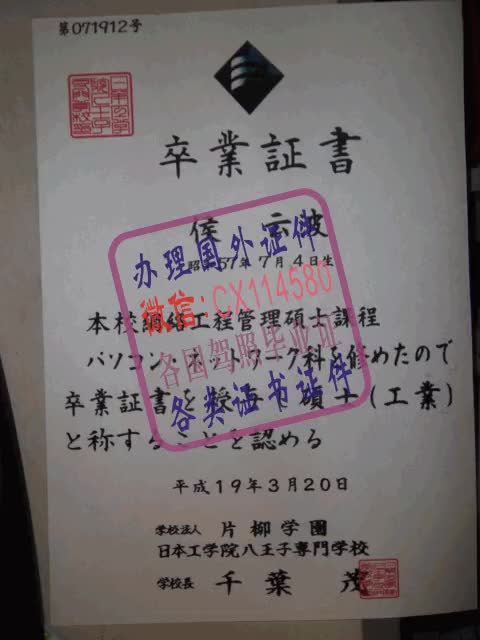 第071912号
卒業証書
侯 云波
昭 57年7月4日生
本校網絡工程管理碩士課程
パソコン・ネットワーク科を修めたので
卒業証書を授与 碩士(工業)
と称することを認める
平成19年3月20日
学校法人 片柳学園
日本工学院八王子専門学校
学校長 千葉 茂
办理国外证件
微信:CX114580
各国驾照毕业证
各类证书证件